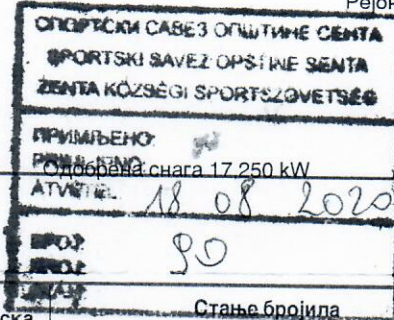 Рејон
СПОРТСКИ САВЕЗ ОПШТИНЕ СЕНТА
SPORTSKI SAVEZ OPŠTINE SENTA
ZENTA KÖZSÉGI SPORTSZÖVETSÉG
ПРИМЉЕНО:
PRIMLJENO:
Одобрена снага 17,250 kW
18 08 2020
БРОЈ:
BROJ:
ска
Стање бројила